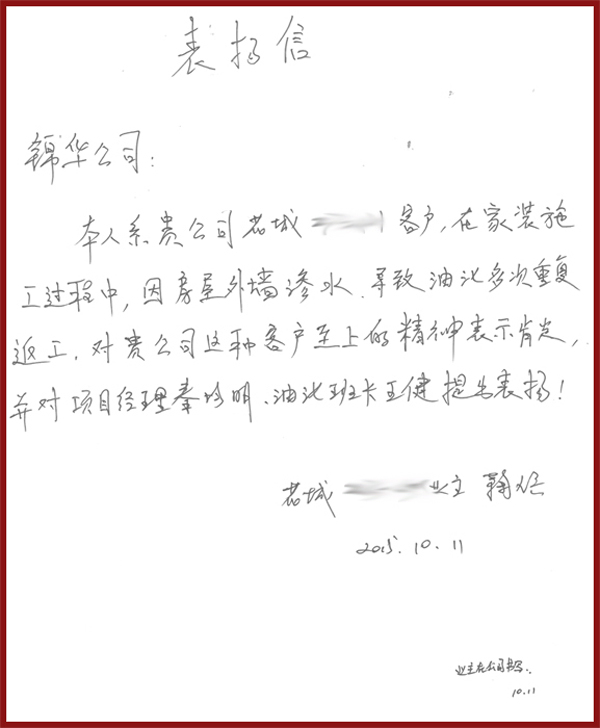 表扬信
锦华公司:
本人系贵公司老城 客户,在家装施
工过程中,因房屋外墙渗水.导致油化多次重复
返工.对贵公司这种客户至上的精神表示肯定,
并对项目经理秦 明、油化班长王健提出表扬!
老城 业主
2015.10.11
业主在公司书写.
10.11